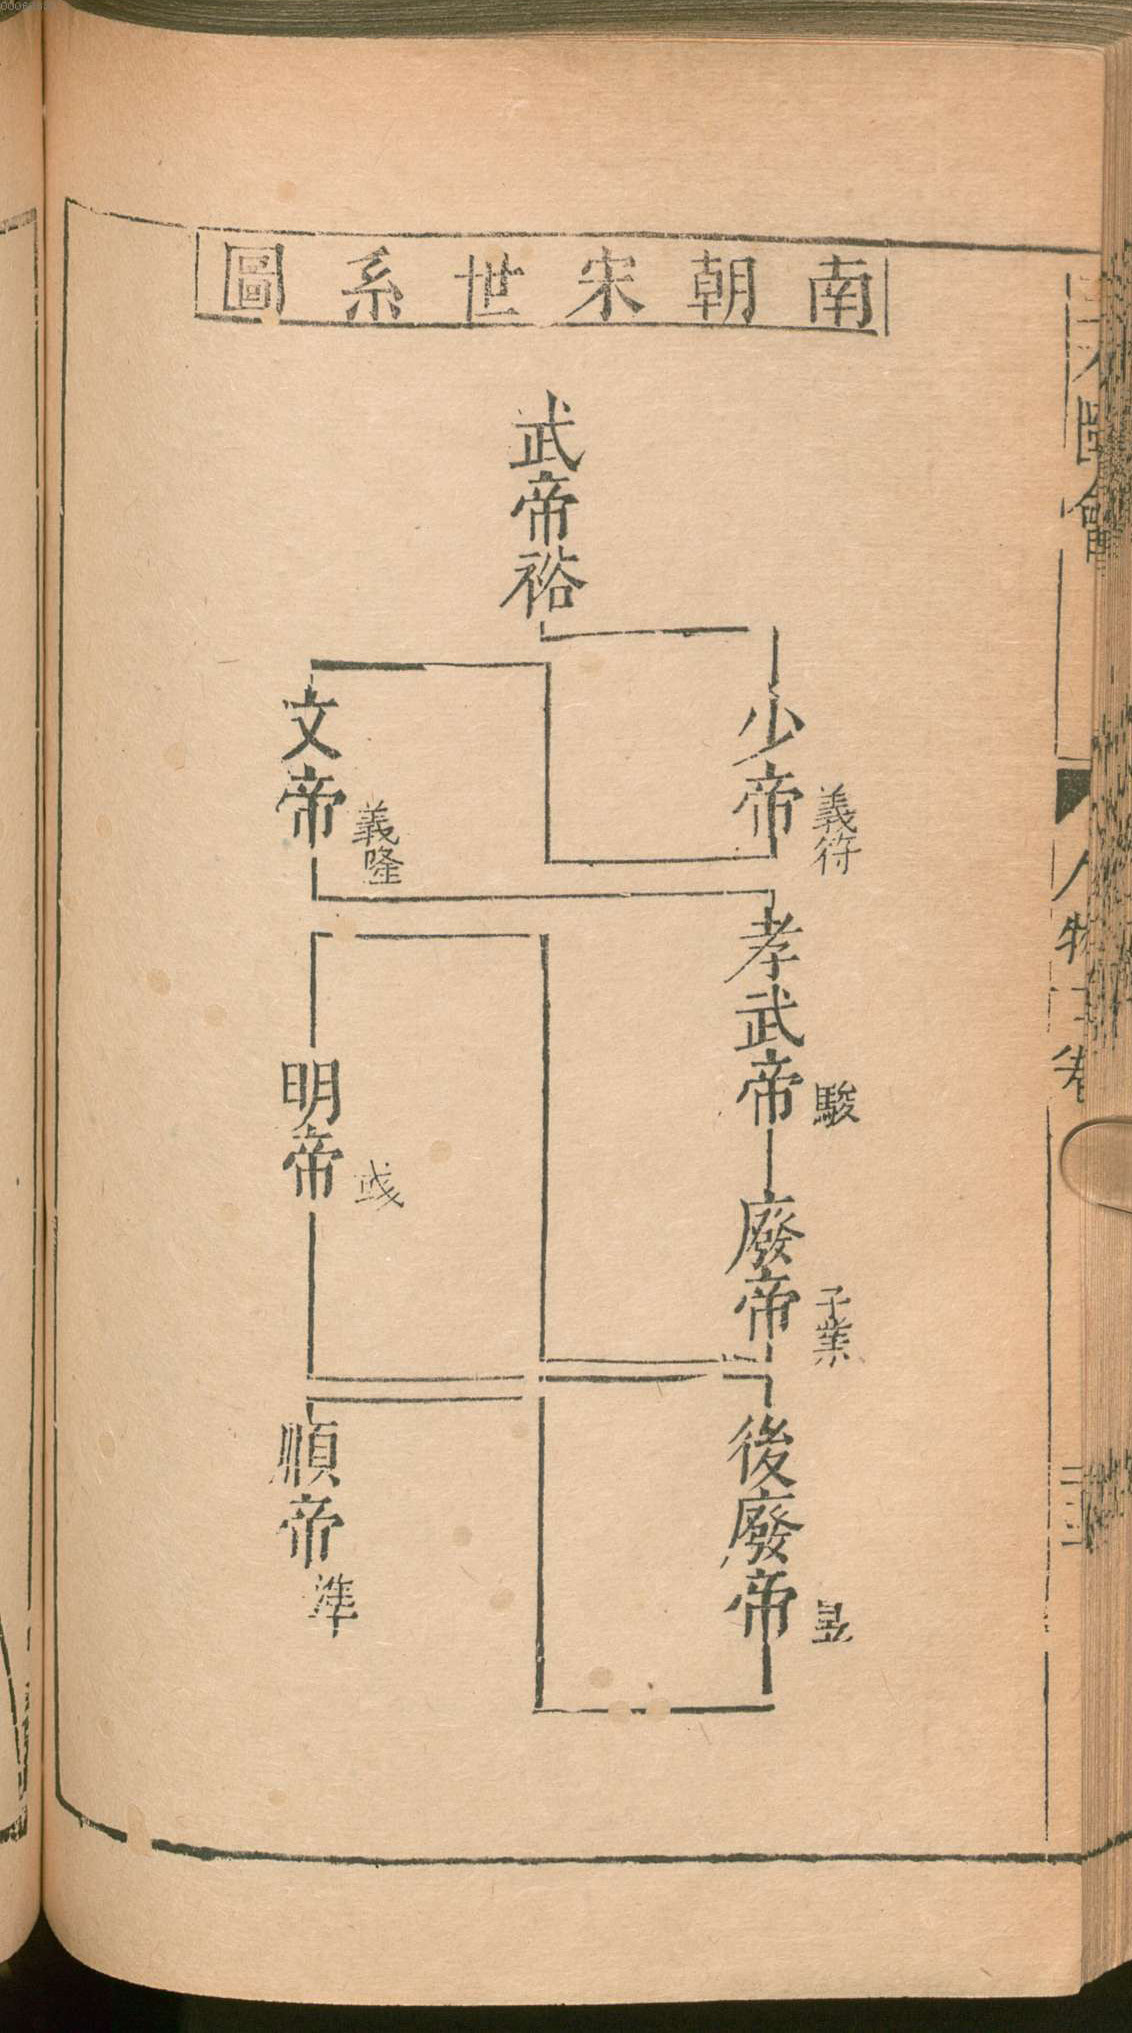 南朝宋世系圖
武帝裕
少帝
義符
文帝
義隆
孝武帝
駿
廢帝
子業
明帝
彧
後廢帝
昱
順帝
準
圖會
人物二卷